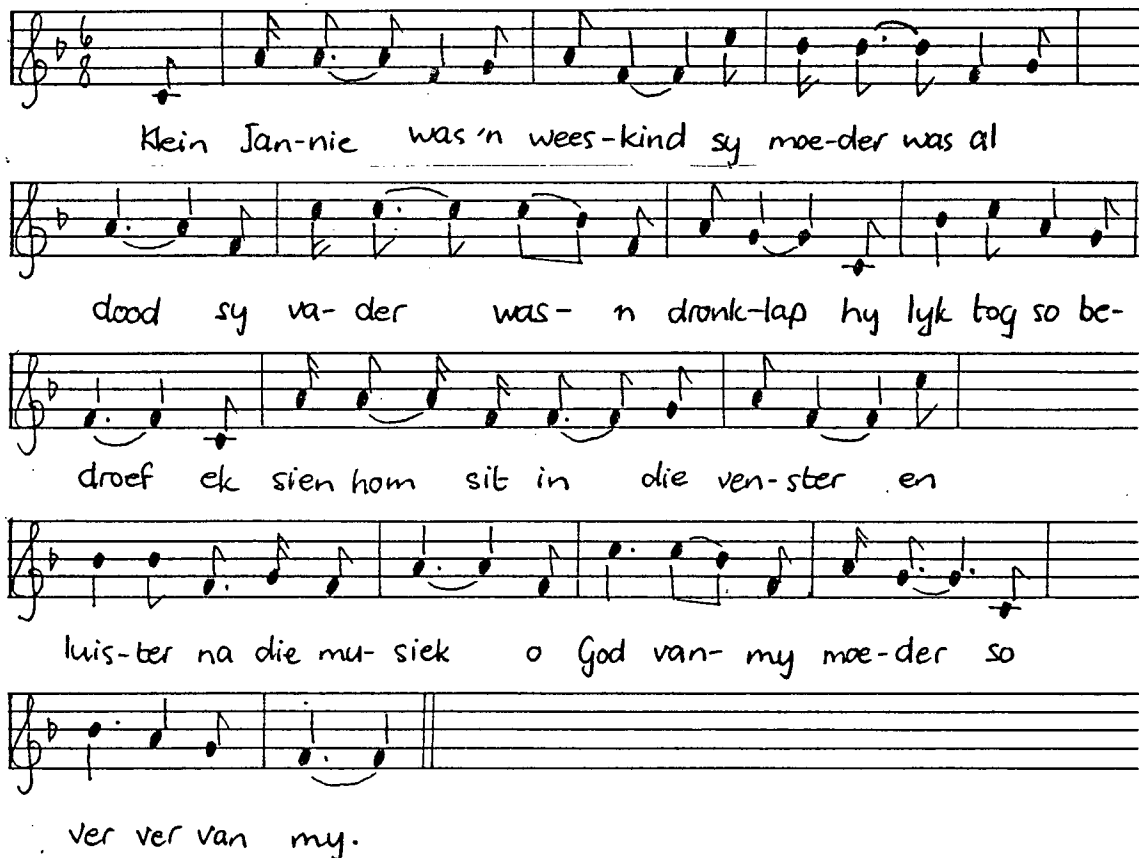 6
8
Klein Jan-nie was 'n wees-kind sy moe-der was al
dood sy va- der was- n dronk-lap hy lyk tog so be-
droef ek sien hom sit in die ven-ster en
luis-ter na die mu- siek o God van- my moe-der so
ver ver van my.